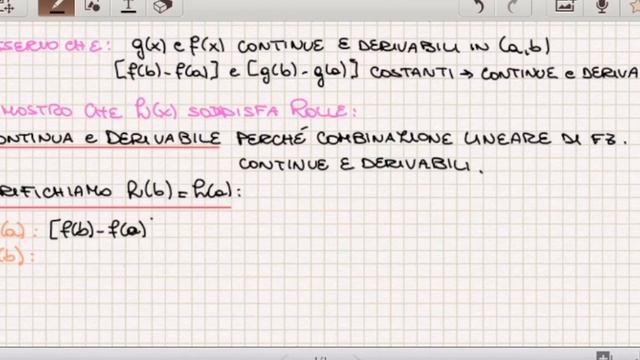 SSERVO CHE: g(x) e f(x) CONTINUE E DERIVABILI IN (a,b)
[f(b)-f(a)] e [g(b)-g(a)] COSTANTI → CONTINUE e DERIVA
MOSTRO CHE h(x) SODDISFA ROLLE:
ONTINUA e DERIVABILE PERCHÉ COMBINAZIONE LINEARE DI FZ.
CONTINUE E DERIVABILI.
RIFICHIAMO h(b)=h(a):
(a): [f(b)-f(a)
(b):